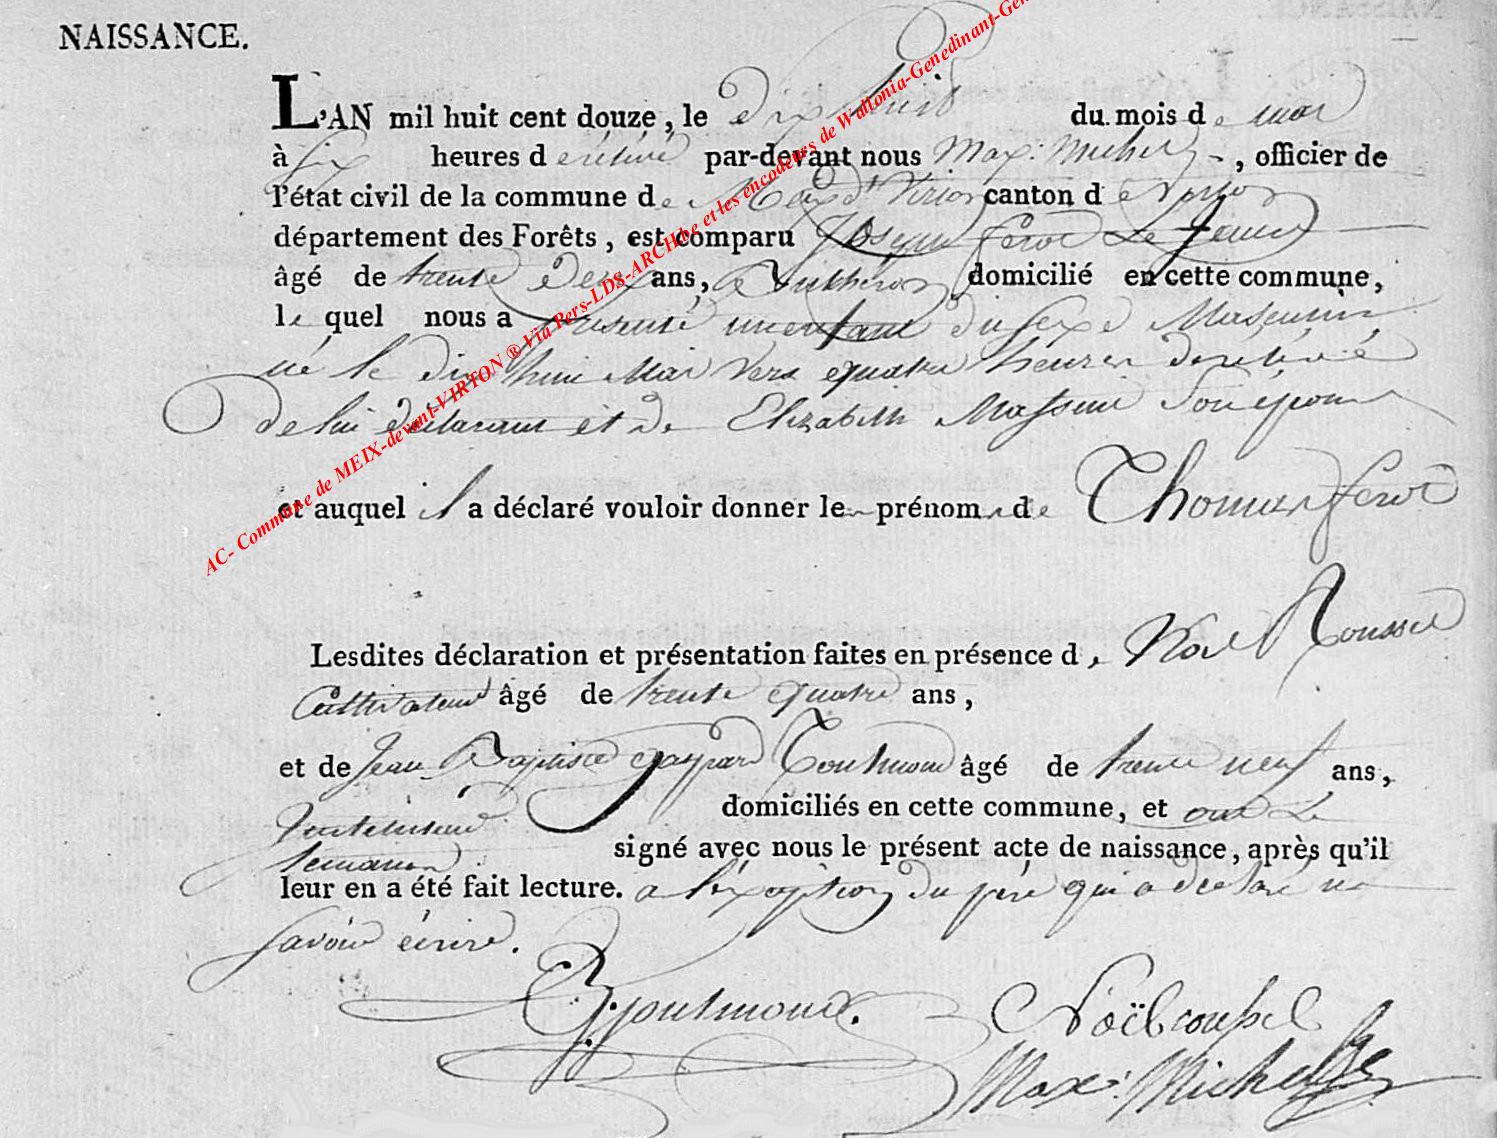 NAISSANCE.
L'AN mil huit cent douze, le dix huit du mois de mai
à six heures de relevée par-devant nous Max: Michel, officier de
l'état civil de la commune de Meix dt Virton canton de Virton
département des Forêts, est comparu Joseph feroc Le jeune
âgé de trente deux ans, domicilié en cette commune,
lequel nous a présenté un enfant du sexe Masculin
né le dix huit Mai vers quatre heures de relevée
de lui déclarant et de Elizabeth Massini son épouse
et auquel il a déclaré vouloir donner les prénoms de Thomas feroc
Lesdites déclaration et présentation faites en présence de Noel
Cultivateur âgé de trente quatre ans,
et de Jean Baptiste gaspard âgé de trente neuf ans,
domiciliés en cette commune, et ont Le
signé avec nous le présent acte de naissance, après qu'il
leur en a été fait lecture. a l'exception du père qui a déclaré ne
savoir écrire.
Noël
Max: Michel
AC- Commune de MEIX-devant-VIRTON ® Via Pers-LDS-ARCH.be et les encodeurs de Wallonia-Genedinant-Gen